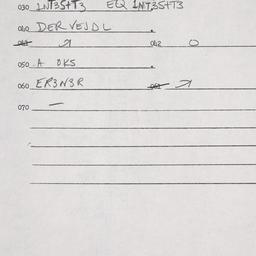 030 INT3St+T3 EQ INT3St+T3
040 DERVEJDL .
041 ↗ 042 O
050 A BKS .
060 ER3N3R 061 ↗
070 —